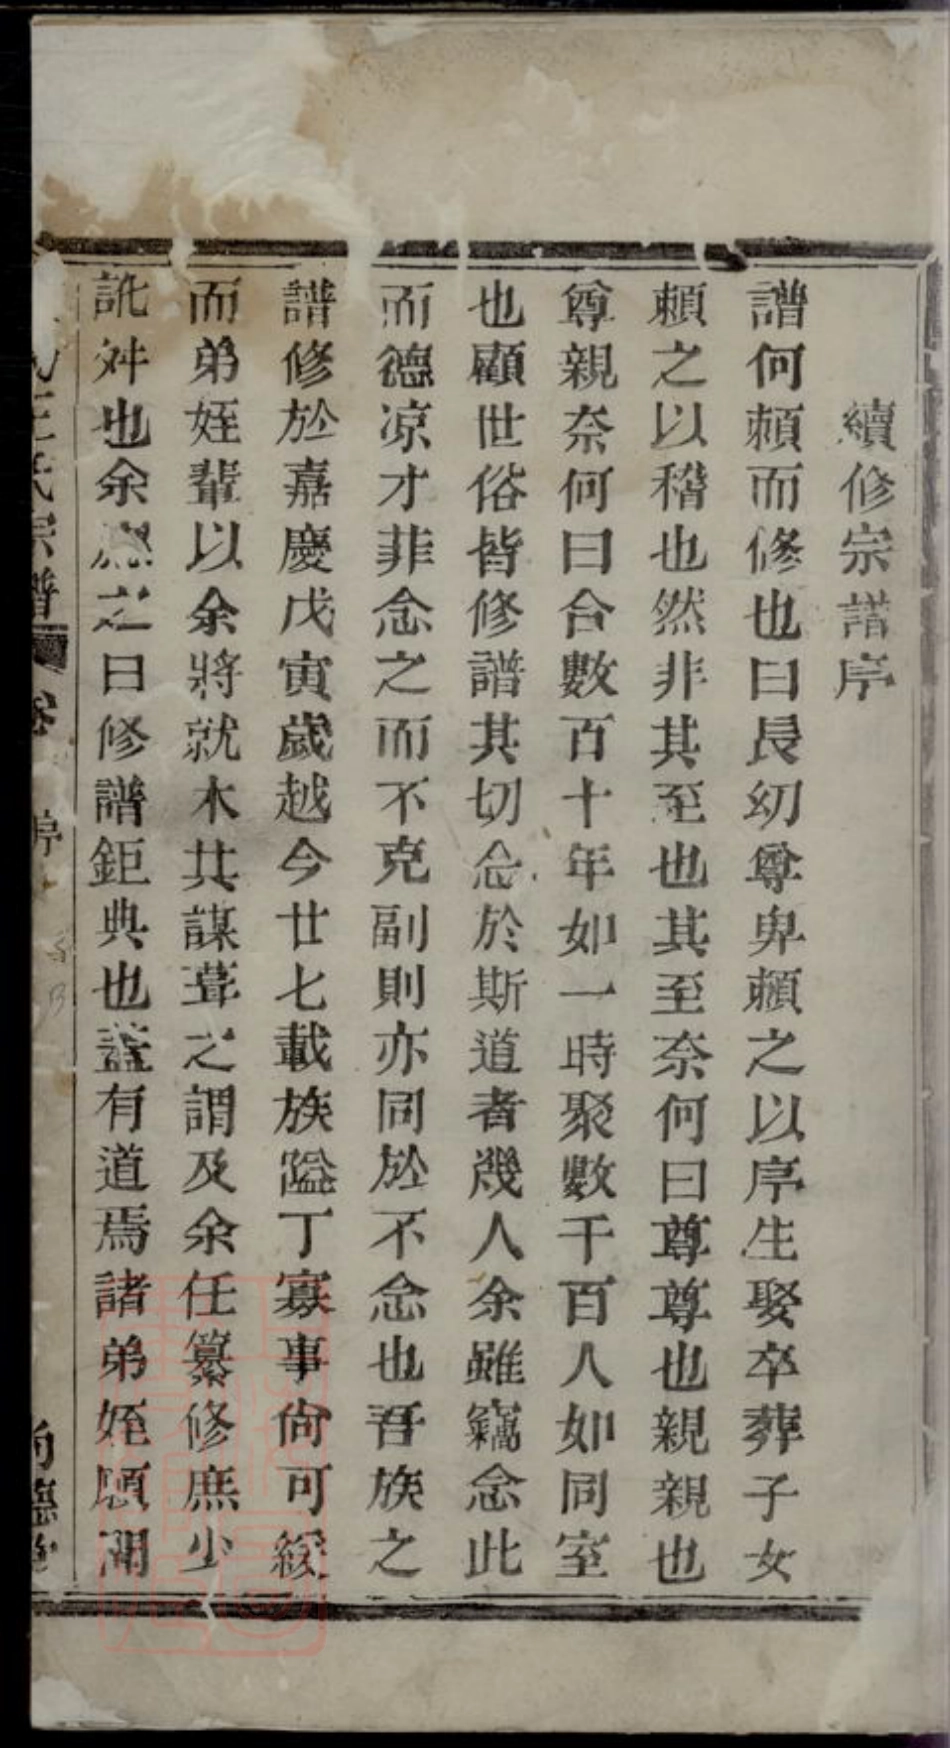 續修宗譜序
譜何賴而修也曰長幼尊卑賴之以序生娶卒葬子女
賴之以稽也然非其至也其至奈何曰尊尊也親親也
尊親奈何曰合數百十年如一時聚數千百人如同室
也顧世俗皆修譜其切念於斯道者幾人余雖竊念此
而德凉才菲念之而不克副則亦同於不念也吾族之
譜修於嘉慶戊寅歲越今廿七載族隘丁寡事尙可緩
而弟姪輩以余將就木共謀葺之謂及余任纂修庶少
訛舛也余應之曰修譜鉅典也蓋有道焉諸弟姪願聞
王氏宗譜 卷 序 尙德堂